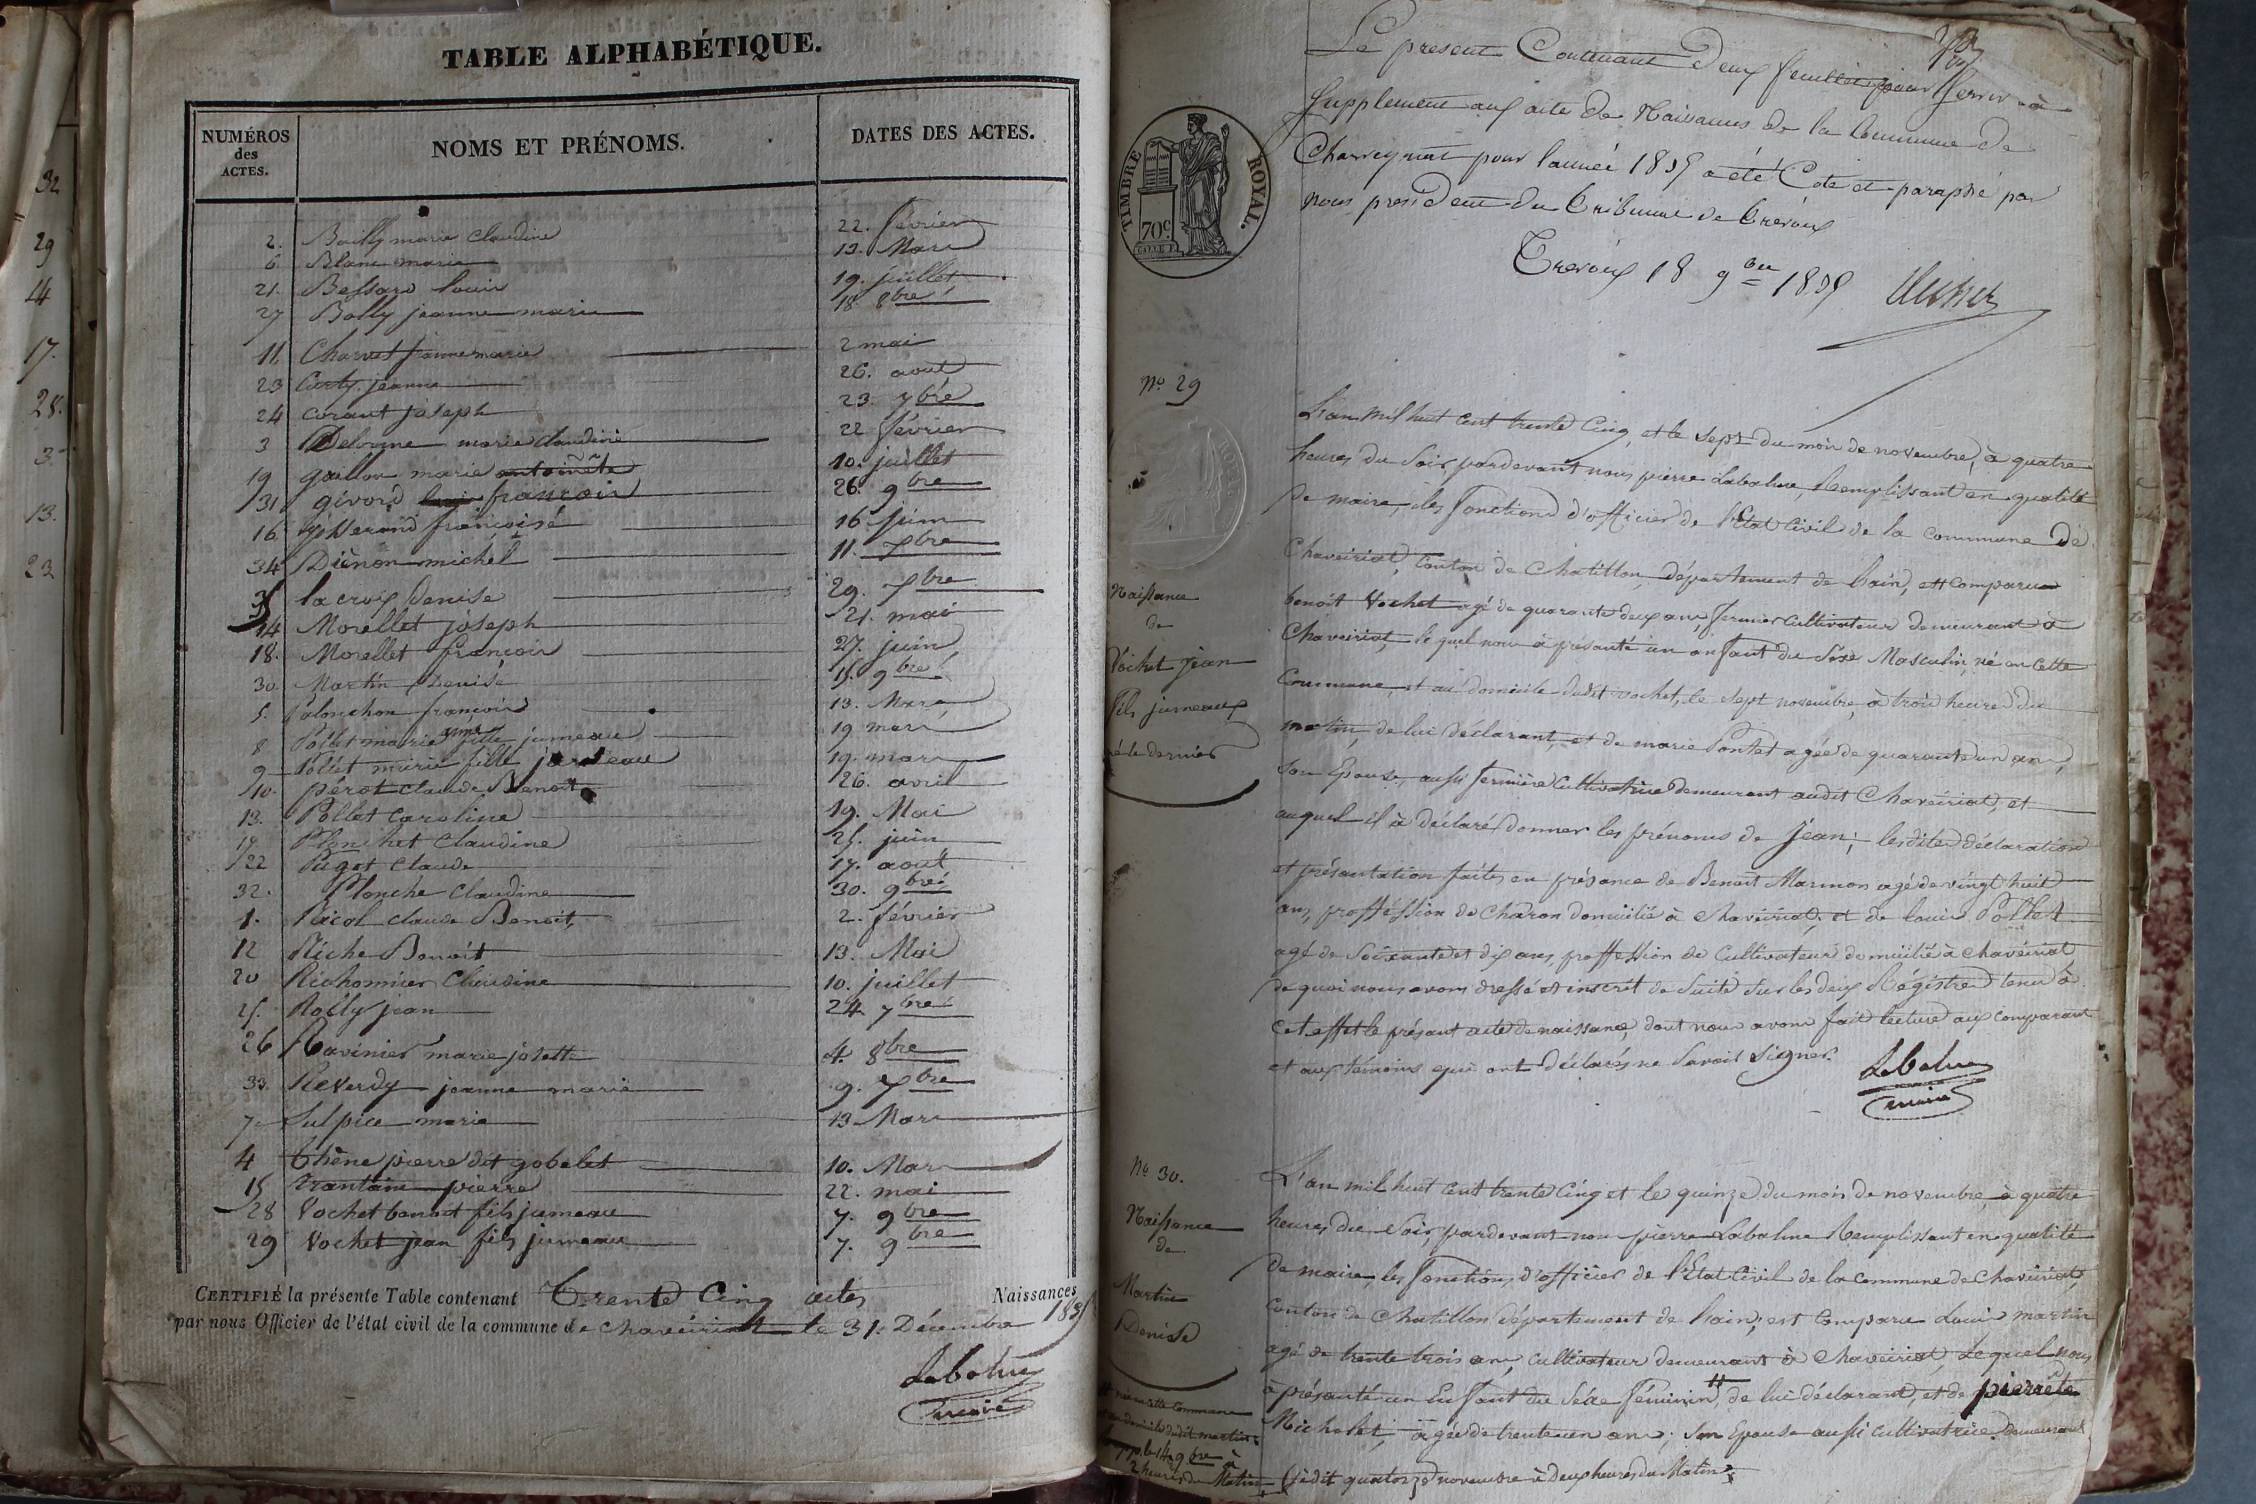 32
29
14
17.
28.
3.
13.
23
TABLE ALPHABÉTIQUE.
NUMÉROS des ACTES.
NOMS ET PRÉNOMS.
DATES DES ACTES.
2. Bailly marie claudine 22. février
6. Blanc marie 13. Mars
21. Bessard louis 19. juillet
27 Bolly jeanne marie 18. 8bre
11. Charvet jeanne marie 2 mai
23 Curty jeanne 26. aout
24 corant joseph 23. 7bre
3 marie claudine 22 février
19 gaillon marie antoinète 10. juillet
31 givord françois 26. 9bre
16 françoise 16. juin
34 Diènon michel 11. Xbre
35 lacroix Denise 29. Xbre
14 Morellet jóseph 21. mai
18. Morellet françois 27. juin
30 Martin Denise 15. 9bre
5. palonchon françois 13. Mars
8 Pollet marie fille jumeau 19 mars
9 Pollet marie fille jumeau 19. mars
10. pérot claude Benoit 26. avril
13. Pollet Caroline 19. Mai
17 Plonchet Claudine 25. juin
22 Pugot Claude 17. août
32. Plonche Claudine 30. 9bre
1. Racol claude Benoit, 2. février
12 Riche Benoit 13. Mai
20 Richonnier Claudine 10. juillet
25. Rolly jean 24. 7bre
26 Ravinier marie josette 4. 8bre
33. Reverdy jeanne marie 9. Xbre
7. Sulpice marie 13 Mars
4 thène pierre dit gobelet 10. Mars
15 trantain pierre 22. mai
28 Vochet benoit fils jumeau 7. 9bre
29 Vochet jean fils jumeau 7. 9bre
CERTIFIÉ la présente Table contenant Trente Cinq actes Naissances
par nous Officier de l'état civil de la commune de chaveiriat le 31. Décembre 1835
Labalme
maire
Le présent Contenant Deux feuilles pour servir à
Supplement aux acte De Naissances de la Commune de
Chaveyriat pour l'année 1835 a été Coté et paraphé par
nous president Du tribunal de trévoux
TIMBRE ROYAL.
70c
Trévoux 18 9bre 1835
No. 29
Naissance
de
Vochet Jean
fils jumeaux
né le dernier
L'an Mil huit Cent trente Cinq, et le sept du mois de novembre, à quatre
heures du Soir, pardevant nous pierre Labalme, Remplissant en qualité
De maire, les fonctions d'officier de l'Etat Civil de la commune de
Chaveiriat, Canton de Chatillon, département de l'ain, est comparu
benoit Vochet agé de quarante deux ans, fermier Cultivateur demeurant à
Chaveiriat, le quel nous à présanté un anfant du Sexe Masculin, né en cette
Commune, et au domicile dudit vochet, le sept novembre, à trois heures du
matin, de lui Déclarant, et de marie Pontet agée de quarante un ans,
son Epouse, aussi fermière Cultivatrice demeurant audit Chaveiriat, et
auquel il à déclaré donner les prénoms de Jean; lesdites déclaration
et présantation faites en présance de Benoit Marmon agé de vingt huit
ans, proffession de Charon domicilié à chaveiriat, et de louis Pollet
agé de Soixante et dix ans, proffession de Cultivateur domicilié à chaveiriat
de quoi nous avons dressé et inscrit de Suite Sur les deux Régistres tenu à
cet effet le présant acte de naissance, dont nous avons fait lecture aux comparant
et aux témoins qui ont déclarés ne Savoir Signer.
Labalme
maire
No. 30.
Naissance
de
Martin
Denise
L'an mil huit Cent trente Cinq et le quinze du mois de novembre, à quatre
heures du Soir, pardevant nous pierre Labalme Remplissant en qualité
De maire, les fonctions d'officier de l'Etat Civil de la commune de Chaveiriat,
Canton de Chatillon département de l'ain; est Comparu Louis martin
agé de trente trois ans, cultivateur demeurant à Chaveiriat, Lequel nous
à présanté un Enfant du Séxe Féminin, de lui déclarant, et de pierrete
Michelet, agée de trente un ans, Son Epouse aussi Cultivatrice Demeurant
née en cette Commune
domicile dudit martin
le 14. 9bre à
2 heures du Matin
dit quatorze novembre à deux heures du Matin